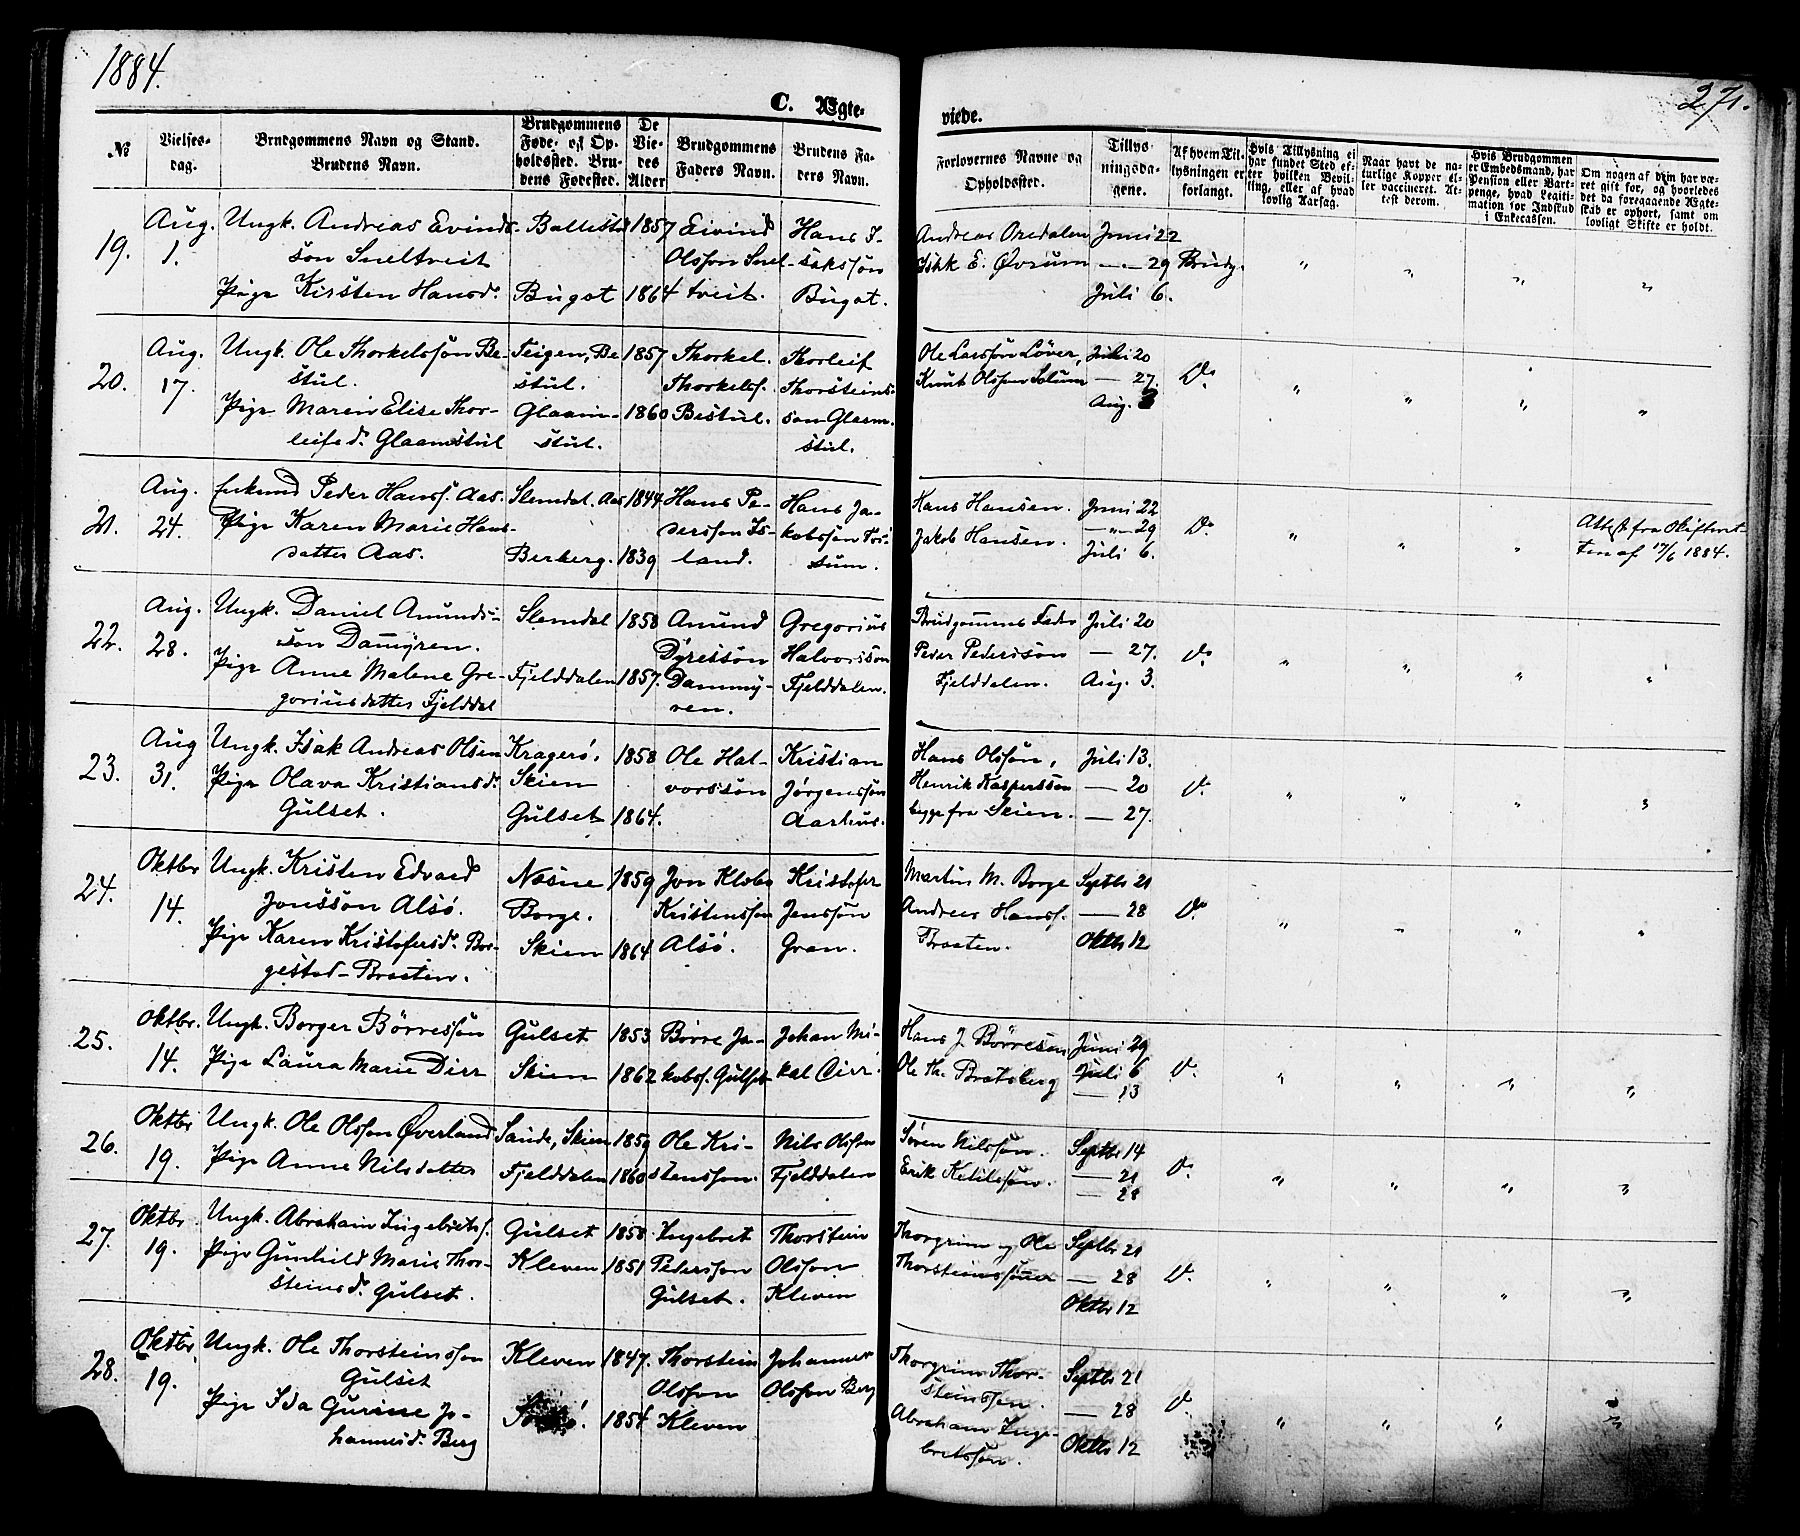 1884.
271.
C. Ægte-
viede.
№
Vielses-
dag.
Brudgommens Navn og Stand.
Brudens Navn.
Brudgommens
Føde- og Op-
holdssted. Bru-
dens Fødested.
De
Vie-
des
Alder
Brudgommens
Faders Navn.
Brudens Fa-
ders Navn.
Forlovernes Navne og
Opholdssted.
Tillys-
ningsda-
gene.
Af hvem Til-
lysningen er
forlangt.
Hvis Tillysning ei
har fundet Sted ef-
ter hvilken Bevil-
ling, eller af hvad
lovlig Aarsag.
Naar havt de na-
turlige Kopper el-
ler vaccineret. At-
test derom.
Hvis Brudgommen
er Embedsmand, har
Pension eller Vart-
penge, hvad Legiti-
mation for Indskud
i Enkecassen.
Om nogen af dem har væ-
ret gift før, og hvorledes
det da foregaaende Ægte-
skab er ophørt, samt om
lovligt Skifte er holdt.
19.
Aug.
1.
Ungk. Andreas Evinds-
søn Sneltveit
Pige Kirsten Hansd.
Bugot
1857
1864
Eivind
Olsson Snel-
tveit.
Hans I-
sakssøn
Bugot.
Andreas
E. Øvrum
Juni 22
— 29
Juli 6.
Brudg.
20.
Aug.
17.
Ungk. Ole Thorkelssøn Be-
stul.
Pige Maren Elise Thor-
leifsd. Glaamstul
Teigen, Be-
stul.
Glaam-
stul.
1857
1860
Thorkel
Thorkelss.
Bestul.
Thorleif
Thorsteins-
søn Glaam-
stul.
Ole Larssøn Løver,
Knut Olsson Solum
Juli 20
— 27.
Aug. 3
Do
21.
Aug.
24.
Enkemd Peder Hanss. Aas.
Pige Karen Marie Hans-
datter Aas.
Slemdal. Aas
Berberg.
1844
1839
Hans Pe-
derssøn Is-
land.
Hans Ja-
kobssøn Fos-
sum.
Hans Hansen.
Jakob Hansen.
Juni 22
— 29
Juli 6.
Do
Attest fra Skifteret-
ten af 17/6 1884.
22.
Aug.
28.
Ungk. Daniel Amunds-
søn Dammyren.
Pige Anne Malene Gre-
goriusdatter Fjelddal
Slemdal
Fjelddalen
1858
1857.
Amund
Dyressøn
Dammy-
ren.
Gregorius
Halvorssøn
Fjelddalen.
Brudgommens Fader
Peder Pederssøn
Fjelddalen.
Juli 20
— 27.
Aug. 3.
Do
23.
Aug
31.
Ungk. Isak Andreas Olsen
Pige Olava Kristiansd.
Gulset.
Kragerø.
Skien
Gulset
1858
1864.
Ole Hal-
vorssøn
Kristian
Jørgenssøn
Aarhus.
Hans Olssøn,
Henrik Kasperssøn
begge fra Skien.
Juli 13.
— 20
— 27.
Do
24.
Oktbr
14.
Ungk. Kristen Edvard
Jonssøn Alsø.
Pige Karen Kristofersd. Bor-
gestad-Braaten.
Nesne
Borge.
Skien
1859
1864
Jon Klobo
Kristenssøn
Alsø.
Kristofer
Jenssøn
Gran.
Martin M. Borge
Andreas Hanss.
Braaten.
Septbr 21
— 28
Oktbr 12
Do
25.
Oktbr.
14.
Ungk. Borger Börressøn
Pige Laura Marie Dirr
Gulset
Skien
1853
1862
Börre Ja-
kobss. Gulset
Johan Mi-
kal Dirr.
Hans J. Börresen
Ole Th. Bratsberg
Juni 29
Juli 6
— 13
Do
26.
Oktbr
19.
Ungk. Ole Olsson Øverland
Pige Anne Nilsdatter
Saude, Skien
Fjelddalen
1859
1860
Ole Kri-
stenssøn.
Nils Olsson
Fjelddalen
Søren Nilssøn.
Erik Ketilssøn.
Septbr 14
— 21
— 28
Do
27.
Oktbr
19.
Ungk. Abraham Ingebretss.
Pige Gunhild Marie Thor-
steinsd. Gulset.
Gulset
Kleven
1858
1851
Ingebret
Peterssøn
Gulset.
Thorstein
Olsson
Kleven
Thorgrim og Ole
Thorsteinssønner
Septbr 21
— 28
Oktbr 12
Do
28.
Oktbr
19.
Ungk. Ole Thorsteinssøn
Gulset
Pige Ida Gurine Jo-
hannesd. Berg
Kleven
1847.
1854
Thorstein
Olsson
Kleven
Johannes
Olsson Berg
Thorgrim Thor-
steinssøn.
Abraham Inge-
bretssøn.
Septbr 21
— 28
Oktbr 12
Do